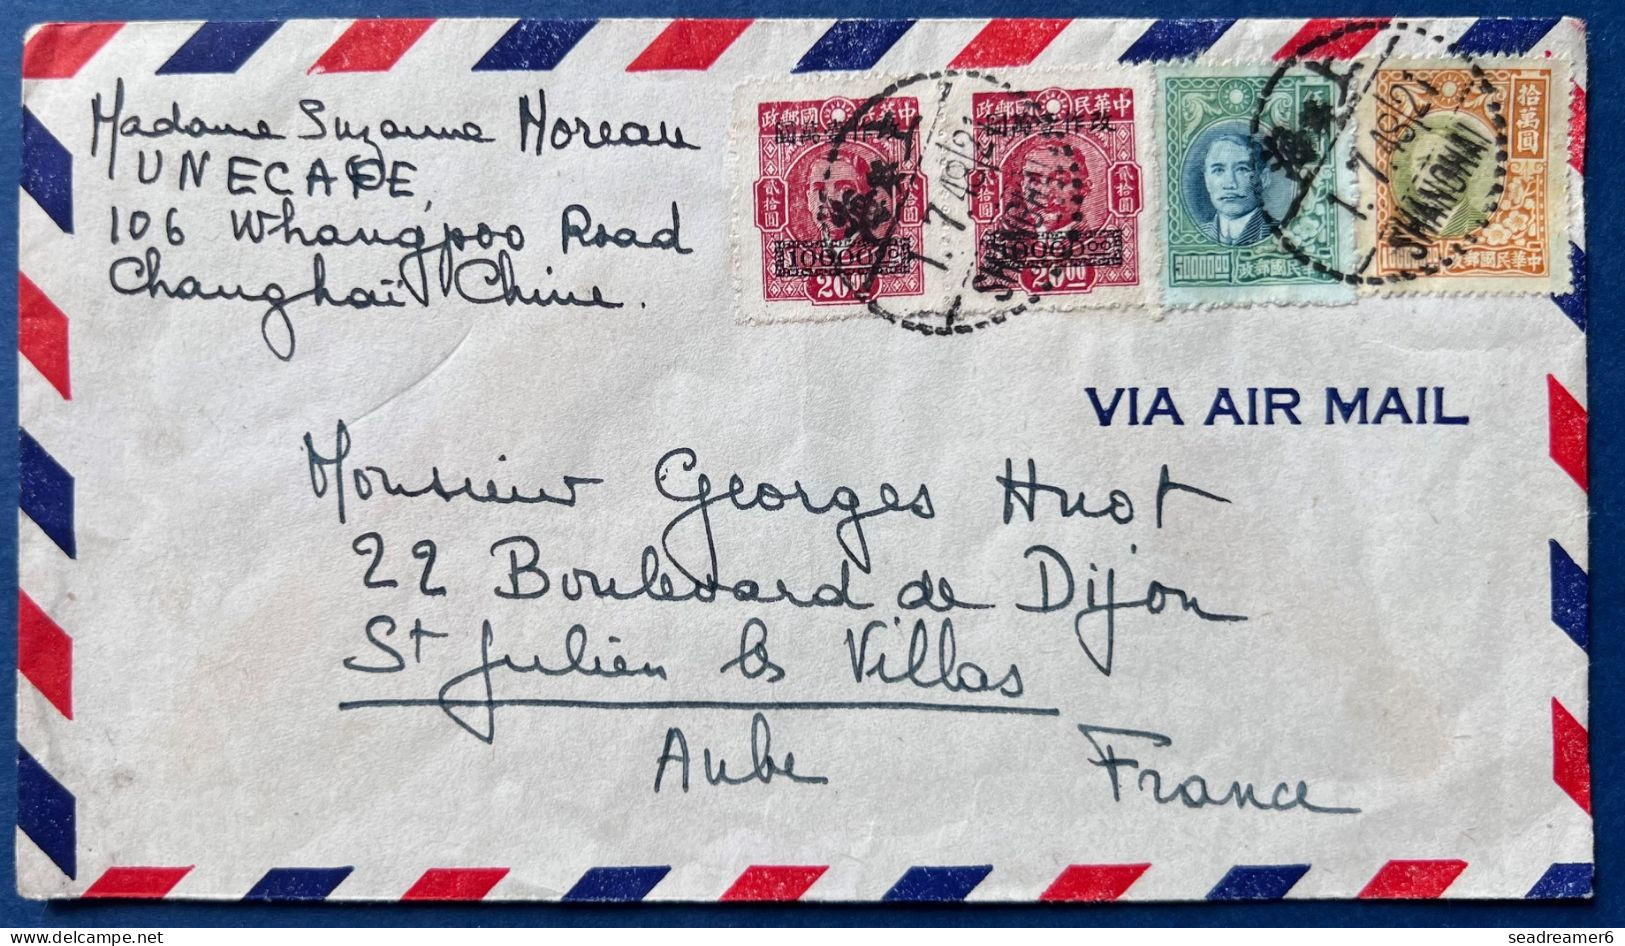 Madame Suzanne Moreau
UNECAFE,
106 Whangpoo Road
Changhaï Chine.
中華民國郵政
改作壹萬圓
貳拾圓
貳拾圓
10000.00
20.00
中華民國郵政
改作壹萬圓
貳拾圓
貳拾圓
10000.00
20.00
中華民國郵政
50000.00
拾萬圓
中華民國郵政
上海
1.7.48/21
SHANGHAI
上海
1.7.48/21
SHANGHAI
VIA AIR MAIL
Monsieur Georges Huot
22 Boulevard de Dijon
St Julien les Villas
Aube France
delcampe.net
seadreamer6